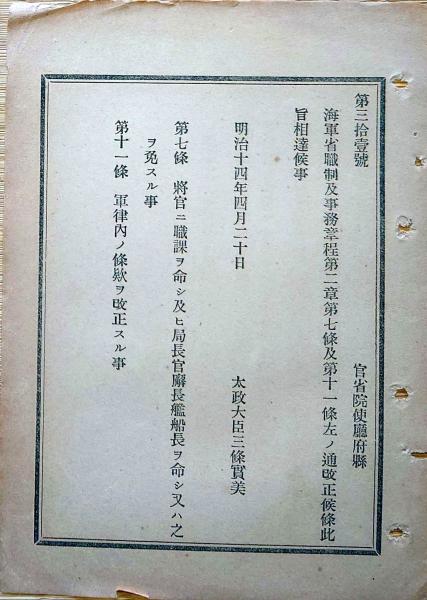 第三拾壹號
官省院使廳府縣
海軍省職制及事務章程第二章第七條及第十一條左ノ通改正候條此
旨相達候事
明治十四年四月二十日
太政大臣三條實美
第七條 將官ニ職課ヲ命シ及ヒ局長官廨長艦船長ヲ命シ又ハ之
ヲ免スル事
第十一條 軍律內ノ條欵ヲ改正スル事